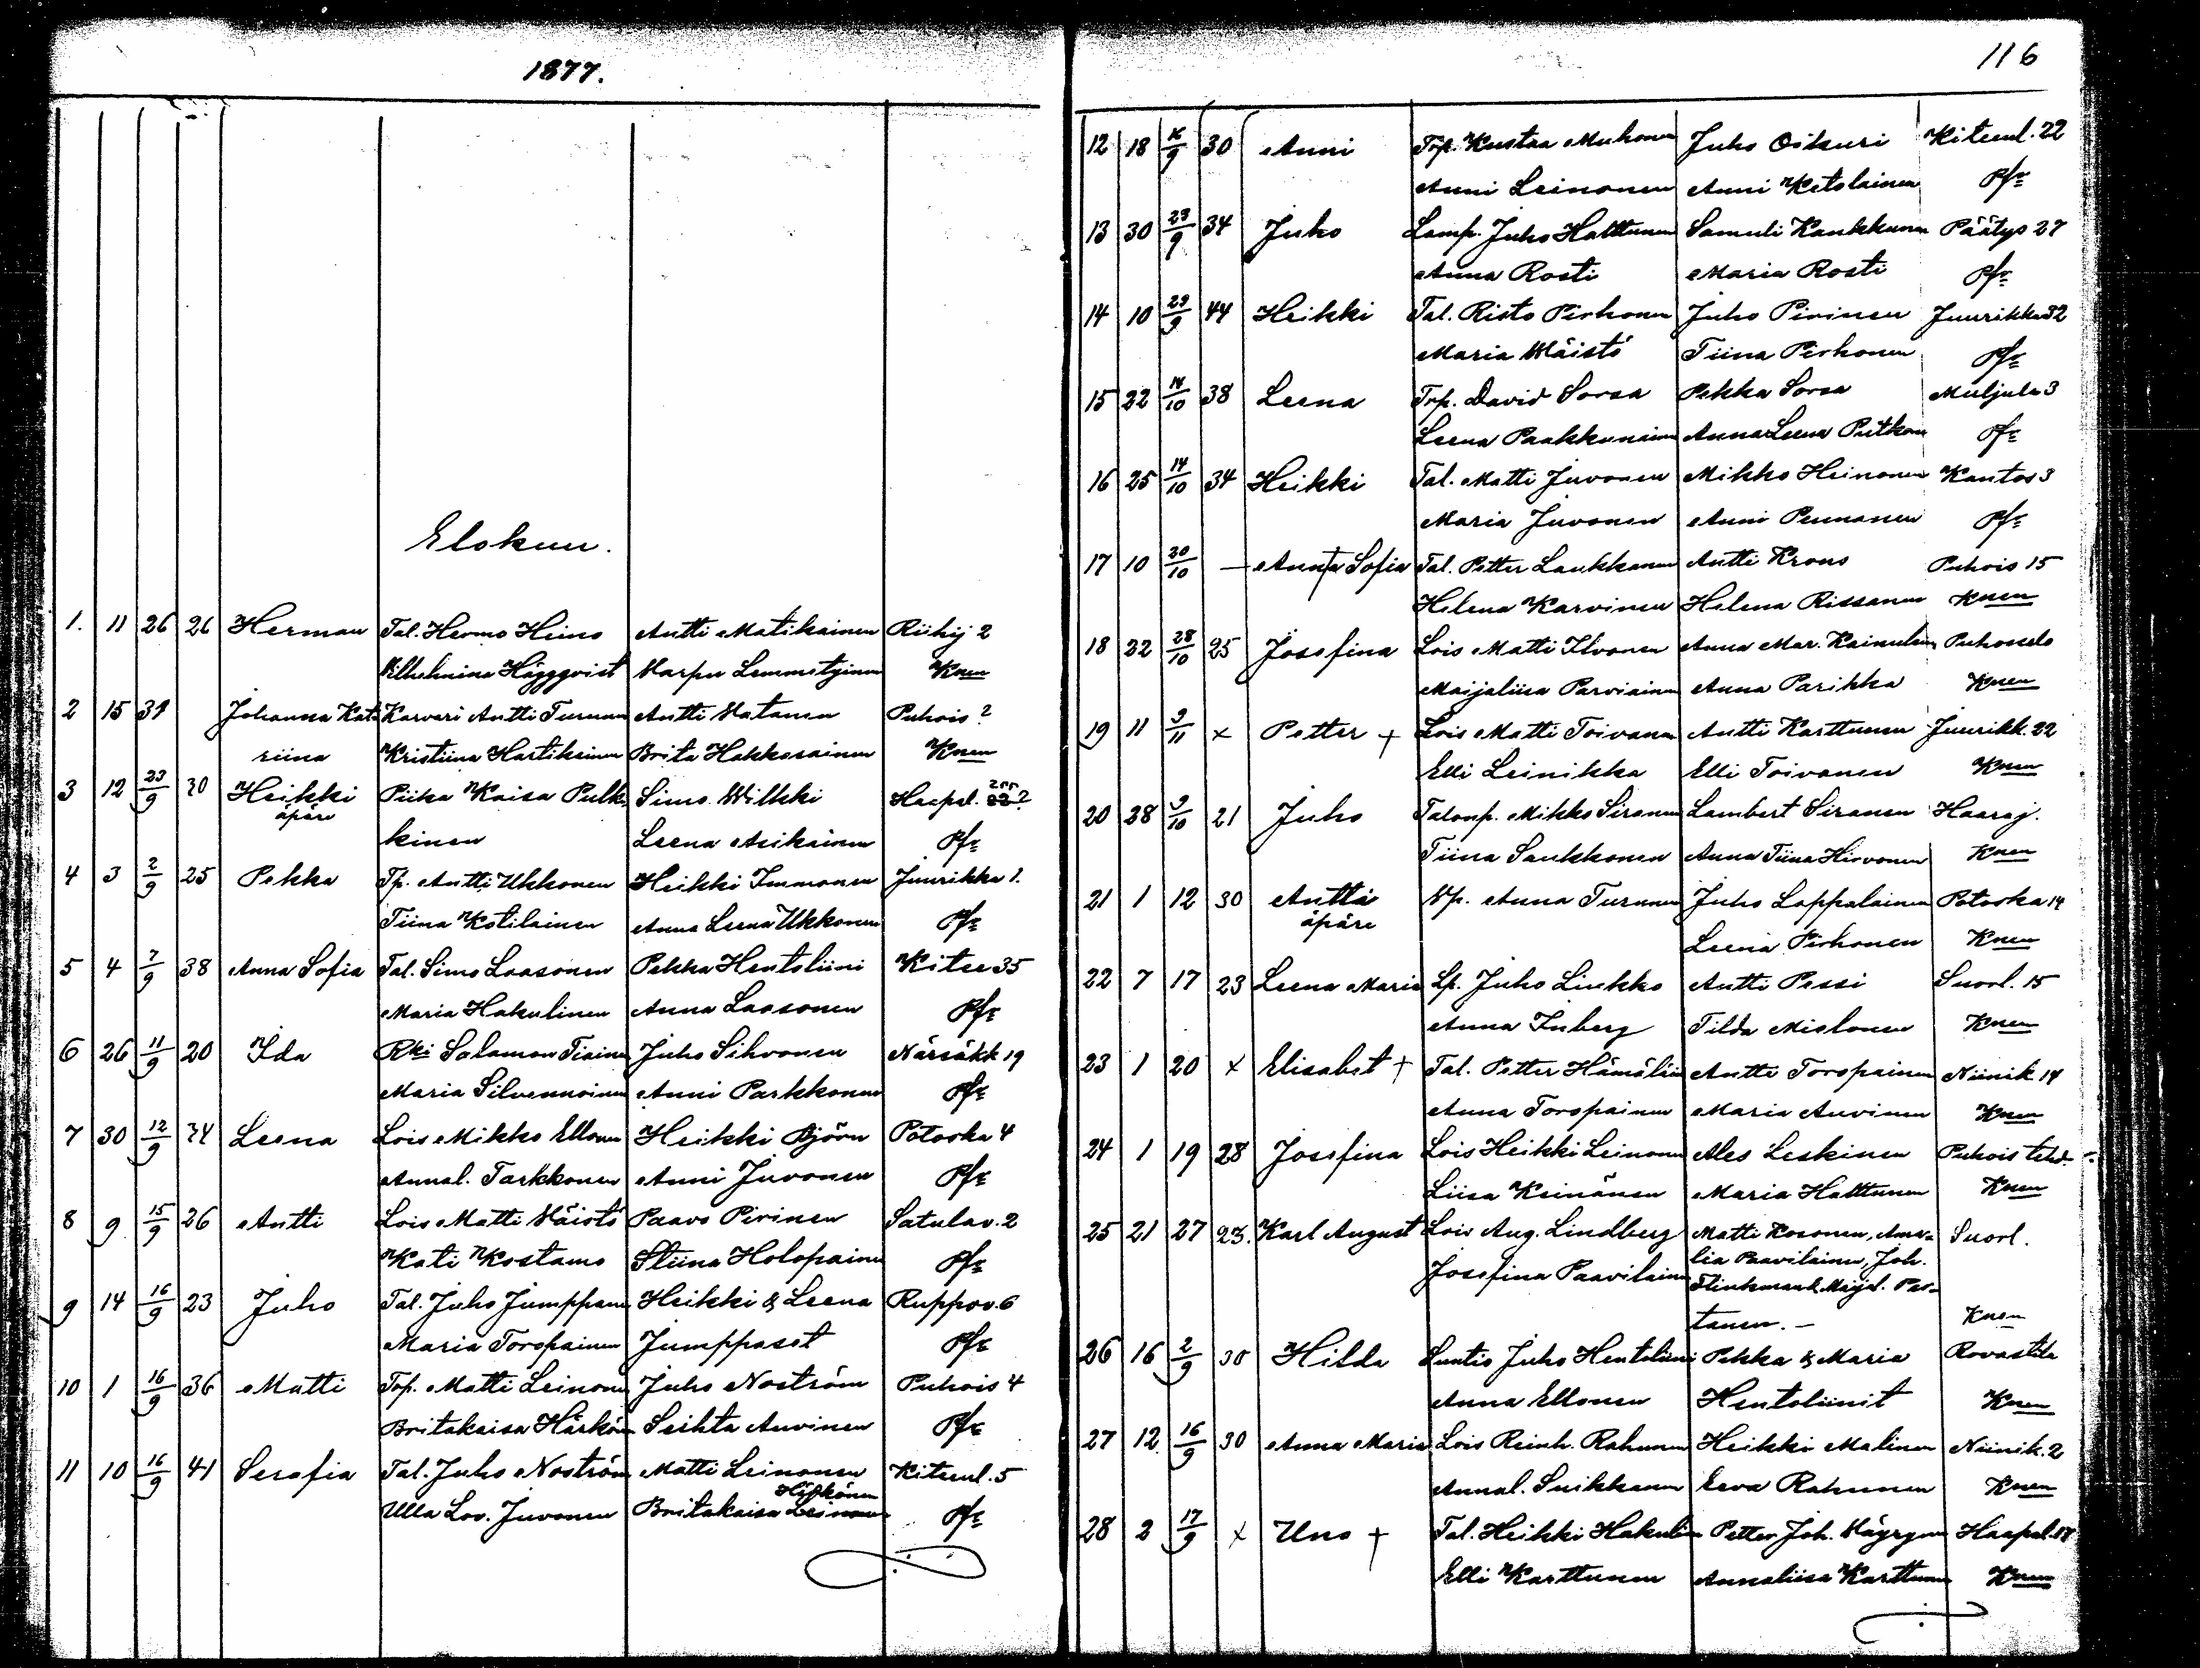 1877.
Elokuu.
1. 11 26 26 Herman Tal. Hermo Heino Antti Matikainen Riihij 2
Vilhelmina Häggqvist Marpu Lemmetyinen Knen
2 15 31 Johanna Kata Karvari Antti Turunen Antti Matanen Puhois 2
riina Kristiina Hartikainen Brita Hakkarainen Knen
3 12 23/9 30 Heikki Piika Kaisa Pulk- Simo Wilkki Haapal.
äpäre kinen Leena Asikainen Pfr
4 3 2/9 25 Pekka Tp. Antti Ukkonen Heikki Immonen Juurikka 1.
Tiina Kotilainen Anna Leena Ukkonen Pfr
5 4 7/9 38 Anna Sofia Tal. Simo Laasonen Pekka Hentoliini Kitee 35
Maria Hakulinen Anna Laasonen Pfr
6 26 11/9 20 Ida Rki Salamon Tiainen Juho Sihvonen Närsäkk 19
Maria Silvennoinen Anni Parkkonen Pfr
7 30 12/9 34 Leena Lois Mikko Ellonen Heikki Björn Potoska 4
Annal. Tarkkonen Anni Juvonen Pfr
8 9 15/9 26 Antti Lois Matti Väistö Paavo Pirinen Satulav. 2
Kati Kostamo Stiina Holopainen Pfr
9 14 16/9 23 Juho Tal. Juho Jumppanen Heikki & Leena Ruppov. 6
Maria Toropainen Jumppaset Pfr
10 1 16/9 36 Matti Trp. Matti Leinonen Juho Noström Puhois 4
Britakaisa Härkön Seihta Auvinen Pfr
11 10 16/9 41 Serafia Tal. Juho Noström Matti Leinonen Kiteenl. 5
Härkönen
Ulla Lov. Juvonen Britakaisa Leinonen Pfr
116
12 18 /9 30 Anni Trp. Kustaa Muhonen Juho Oikuri Kiteenl. 22
Anni Leinonen Anni Ketolainen Pfr
13 30 23/9 34 Juho Lamp. Juho Halttunen Samuli Kaukkunen Päätys 27
Anna Rosti Maria Rosti Pfr
14 10 23/9 44 Heikki Tal. Risto Pirhonen Juho Pirinen Juurikka 32
Maria Väistö Tiina Pirhonen Pfr
15 22 14/10 38 Leena Trp. David Sorsa Pekka Sorsa Muljula 3
Leena Paakkunainen Anna Leena Putkon Pfr
16 25 14/10 34 Heikki Tal. Matti Juvonen Mikko Heinonen Kantos 3
Maria Juvonen Anni Pennanen Pfr
17 10 20/10 — Anna Sofia Tal. Petter Laukkanen Antti Krons Puhois 15
Helena Karvinen Helena Rissanen Knen
18 22 28/10 25 Josefina Lois Matti Ilvonen Anna Mar. Kainulain Puhossalo
Maijaliisa Parviainen Anna Parikka Knen
19 11 9/11 x Petter + Lois Matti Toivanen Antti Karttunen Juurikk. 22
Elli Leinikka Elli Toivanen Knen
20 28 9/10 21 Juho Talonp. Mikko Siranen Lambert Siranen Haaraj.
Tiina Saukkonen Anna Tiina Hirvonen Knen
21 1 12 30 Antti Np. Anna Turunen Juho Lappalainen Potoska 14
äpäre Leena Pirhonen Knen
22 7 17 23 Leena Maria Lp. Juho Liukko Antti Pessi Suorl. 15
Anna Inberg Tilda Mislonen Knen
23 1 20 x Elisabet + Tal. Petter Hämäläin Antti Toropainen Niinik 14
Anna Toropainen Maria Auvinen Knen
24 1 19 28 Josefina Lois Heikki Leinonen Ales Leskinen Puhois tehd.
Liisa Keinänen Maria Halttunen Knen
25 21 27 23. Karl August Lois Aug. Lindberg Matti Kosonen, Ama- Suorl.
Josefina Paavilainen lia Paavilainen, Joh.
Flinkmank, Maijal. Par-
tanen. — Knen
26 16 2/9 30 Hilda Suntio Juho Hentoliini Pekka & Maria Rovastila
Anna Ellonen Hentoliinit Knen
27 12 16/9 30 Anna Maria Lois Reinh. Rahunen Heikki Malinen Niinik. 2
Annal. Suikkanen Eeva Rahunen Knen
28 2 17/9 x Uno + Tal. Heikki Hakulin Petter Joh. Väyrynen Haapal. 18
Elli Karttunen Annaliisa Karttunen Knen